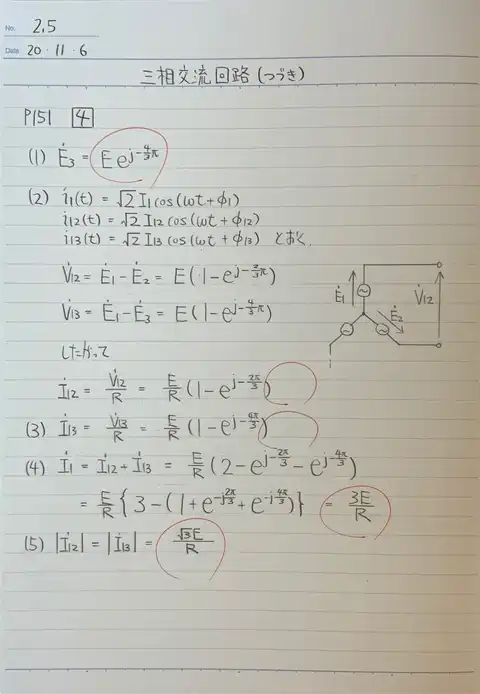 No. 2.5
Date 20・11・6
三相交流回路(つづき)
P151 4
(1) Ė₃ = E e^{j-\frac{4}{3}π}
(2) i₁(t) = √2 I₁ cos(ωt+φ₁)
i₁₂(t) = √2 I₁₂ cos(ωt+φ₁₂)
i₁₃(t) = √2 I₁₃ cos(ωt+φ₁₃) とおく,
V̇₁₂ = Ė₁ - Ė₂ = E(1-e^{j-\frac{2}{3}π})
V̇₁₃ = Ė₁ - Ė₃ = E(1-e^{j-\frac{4}{3}π})
Ė₁ Ė₂ V̇₁₂
したがって
İ₁₂ = \frac{V̇₁₂}{R} = \frac{E}{R}(1-e^{j-\frac{2π}{3}})
(3) İ₁₃ = \frac{V̇₁₃}{R} = \frac{E}{R}(1-e^{j-\frac{4π}{3}})
(4) İ₁ = İ₁₂ + İ₁₃ = \frac{E}{R}(2-e^{j-\frac{2π}{3}}-e^{j-\frac{4π}{3}})
= \frac{E}{R}{3-(1+e^{-j\frac{2π}{3}}+e^{-j\frac{4π}{3}})} = \frac{3E}{R}
(5) |İ₁₂| = |İ₁₃| = \frac{√3E}{R}